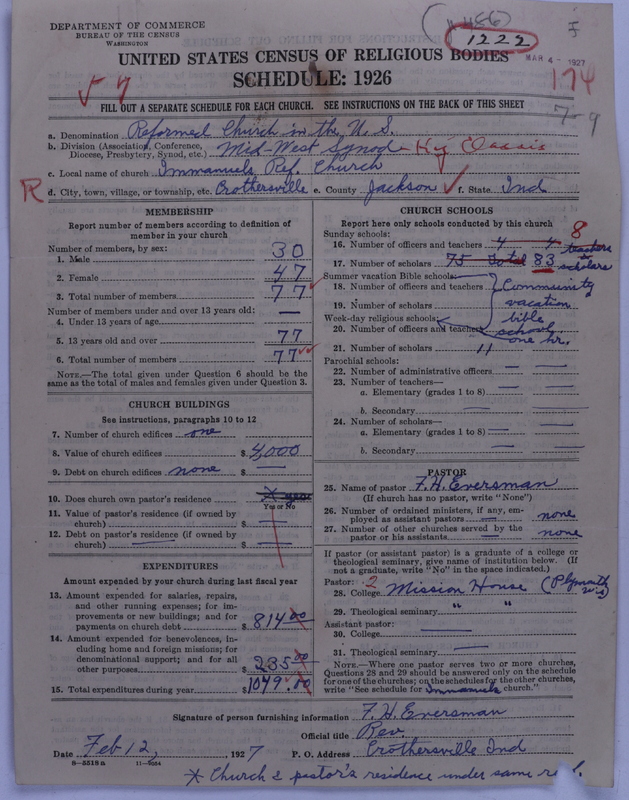 DEPARTMENT OF COMMERCE
BUREAU OF THE CENSUS
WASHINGTON
1222
MAR 4 1927
174
UNITED STATES CENSUS OF RELIGIOUS BODIES
SCHEDULE: 1926
7-9
FILL OUT A SEPARATE SCHEDULE FOR EACH CHURCH. SEE INSTRUCTIONS ON THE BACK OF THIS SHEET
a. Denomination Reformed Church in the U.S.
b. Division (Association, Conference, Diocese, Presbytery, Synod, etc.) Mid-West Synod - Ky Classis
c. Local name of church Immanuels Ref. Church
R d. City, town, village, or township, etc. Crothersville e. County Jackson f. State Ind
MEMBERSHIP
Report number of members according to definition of member in your church
Number of members, by sex:
1. Male 30
2. Female 47
3. Total number of members 77
Number of members under and over 13 years old:
4. Under 13 years of age —
5. 13 years old and over 77
6. Total number of members 77
NOTE.—The total given under Question 6 should be the same as the total of males and females given under Question 3.
CHURCH BUILDINGS
See instructions, paragraphs 10 to 12
7. Number of church edifices one
8. Value of church edifices $ 4000
9. Debt on church edifices none $ —
10. Does church own pastor's residence * yes
Yes or No
11. Value of pastor's residence (if owned by church) $ —
12. Debt on pastor's residence (if owned by church) — $ —
EXPENDITURES
Amount expended by your church during last fiscal year
13. Amount expended for salaries, repairs, and other running expenses; for improvements or new buildings; and for payments on church debt $ 814 00
14. Amount expended for benevolences, including home and foreign missions; for denominational support; and for all other purposes $ 235 00
15. Total expenditures during year $ 1049.00
CHURCH SCHOOLS
Report here only schools conducted by this church
Sunday schools:
16. Number of officers and teachers 4 4 8 teachers
17. Number of scholars 75 total 83 scholars
Summer vacation Bible schools:
18. Number of officers and teachers Community
19. Number of scholars vacation
Week-day religious schools: bible
20. Number of officers and teachers school
one hr.
21. Number of scholars 11
Parochial schools:
22. Number of administrative officers — —
23. Number of teachers—
a. Elementary (grades 1 to 8) — —
b. Secondary — —
24. Number of scholars—
a. Elementary (grades 1 to 8) — —
b. Secondary — —
PASTOR
25. Name of pastor F. H. Eversman
(If church has no pastor, write "None")
26. Number of ordained ministers, if any, employed as assistant pastors — none
27. Number of other churches served by the pastor or his assistants — none
If pastor (or assistant pastor) is a graduate of a college or theological seminary, give name of institution below. (If not a graduate, write "No" in the space indicated.)
Pastor: 2
28. College Mission House (Plymouth Wis)
29. Theological seminary " "
Assistant pastor:
30. College —
31. Theological seminary —
NOTE.—Where one pastor serves two or more churches, Questions 28 and 29 should be answered only on the schedule for one of the churches; on the schedules for the other churches, write "See schedule for Immanuels church."
Signature of person furnishing information F. H. Eversman
Official title Rev.
Date Feb 12, 1927 P. O. Address Crothersville Ind
8—5518a 11—9084
* Church & pastor's residence under same roof.